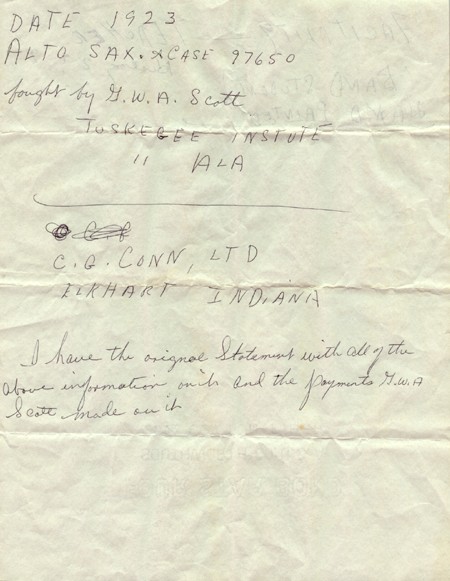 DATE 1923
ALTO SAX. & CASE 97650
fought by G.W.A. Scott
TUSKEGEE INSTUTE
" ALA
C.G. CONN, LTD
ELKHART INDIANA
I have the orignal Statement with all of the
above information on it and the payments G.W.A
Scott made on it